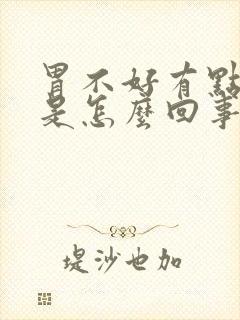 胃不好有點
是怎麼回事
堤沙也加